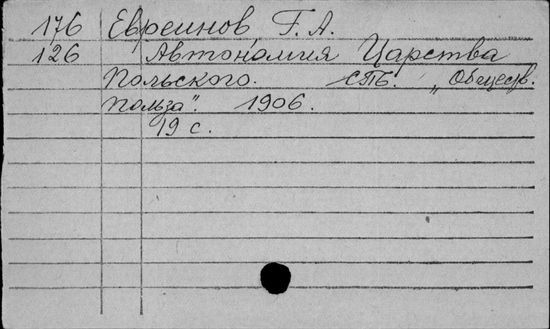 176 Евреинов Г. А.
126 Автономия Царства
Польского. СПБ. „Обществ.
польза". 1906.
19 с.